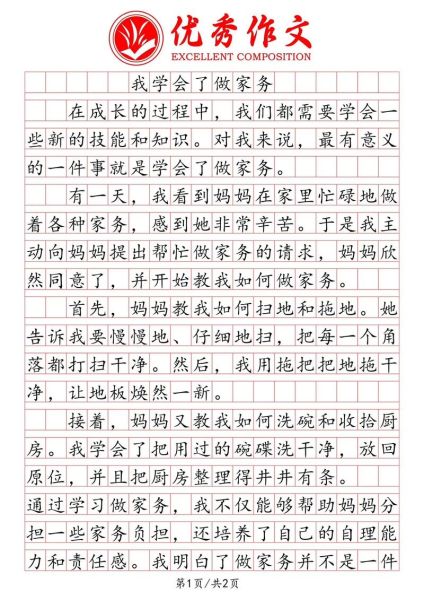 优秀作文
EXCELLENT COMPOSITION
我学会了做家务
在成长的过程中，我们都需要学会一
些新的技能和知识。对我来说，最有意义
的一件事就是学会了做家务。
有一天，我看到妈妈在家里忙碌地做
着各种家务，感到她非常辛苦。于是我主
动向妈妈提出帮忙做家务的请求，妈妈欣
然同意了，并开始教我如何做家务。
首先，妈妈教我如何扫地和拖地。她
告诉我要慢慢地、仔细地扫，把每一个角
落都打扫干净。然后，我用拖把把地拖干
净，让地板焕然一新。
接着，妈妈又教我如何洗碗和收拾厨
房。我学会了把用过的碗碟洗干净，放回
原位，并且把厨房整理得井井有条。
通过学习做家务，我不仅能够帮助妈妈分
担一些家务负担，还培养了自己的自理能
力和责任感。我明白了做家务并不是一件
第1页/共2页